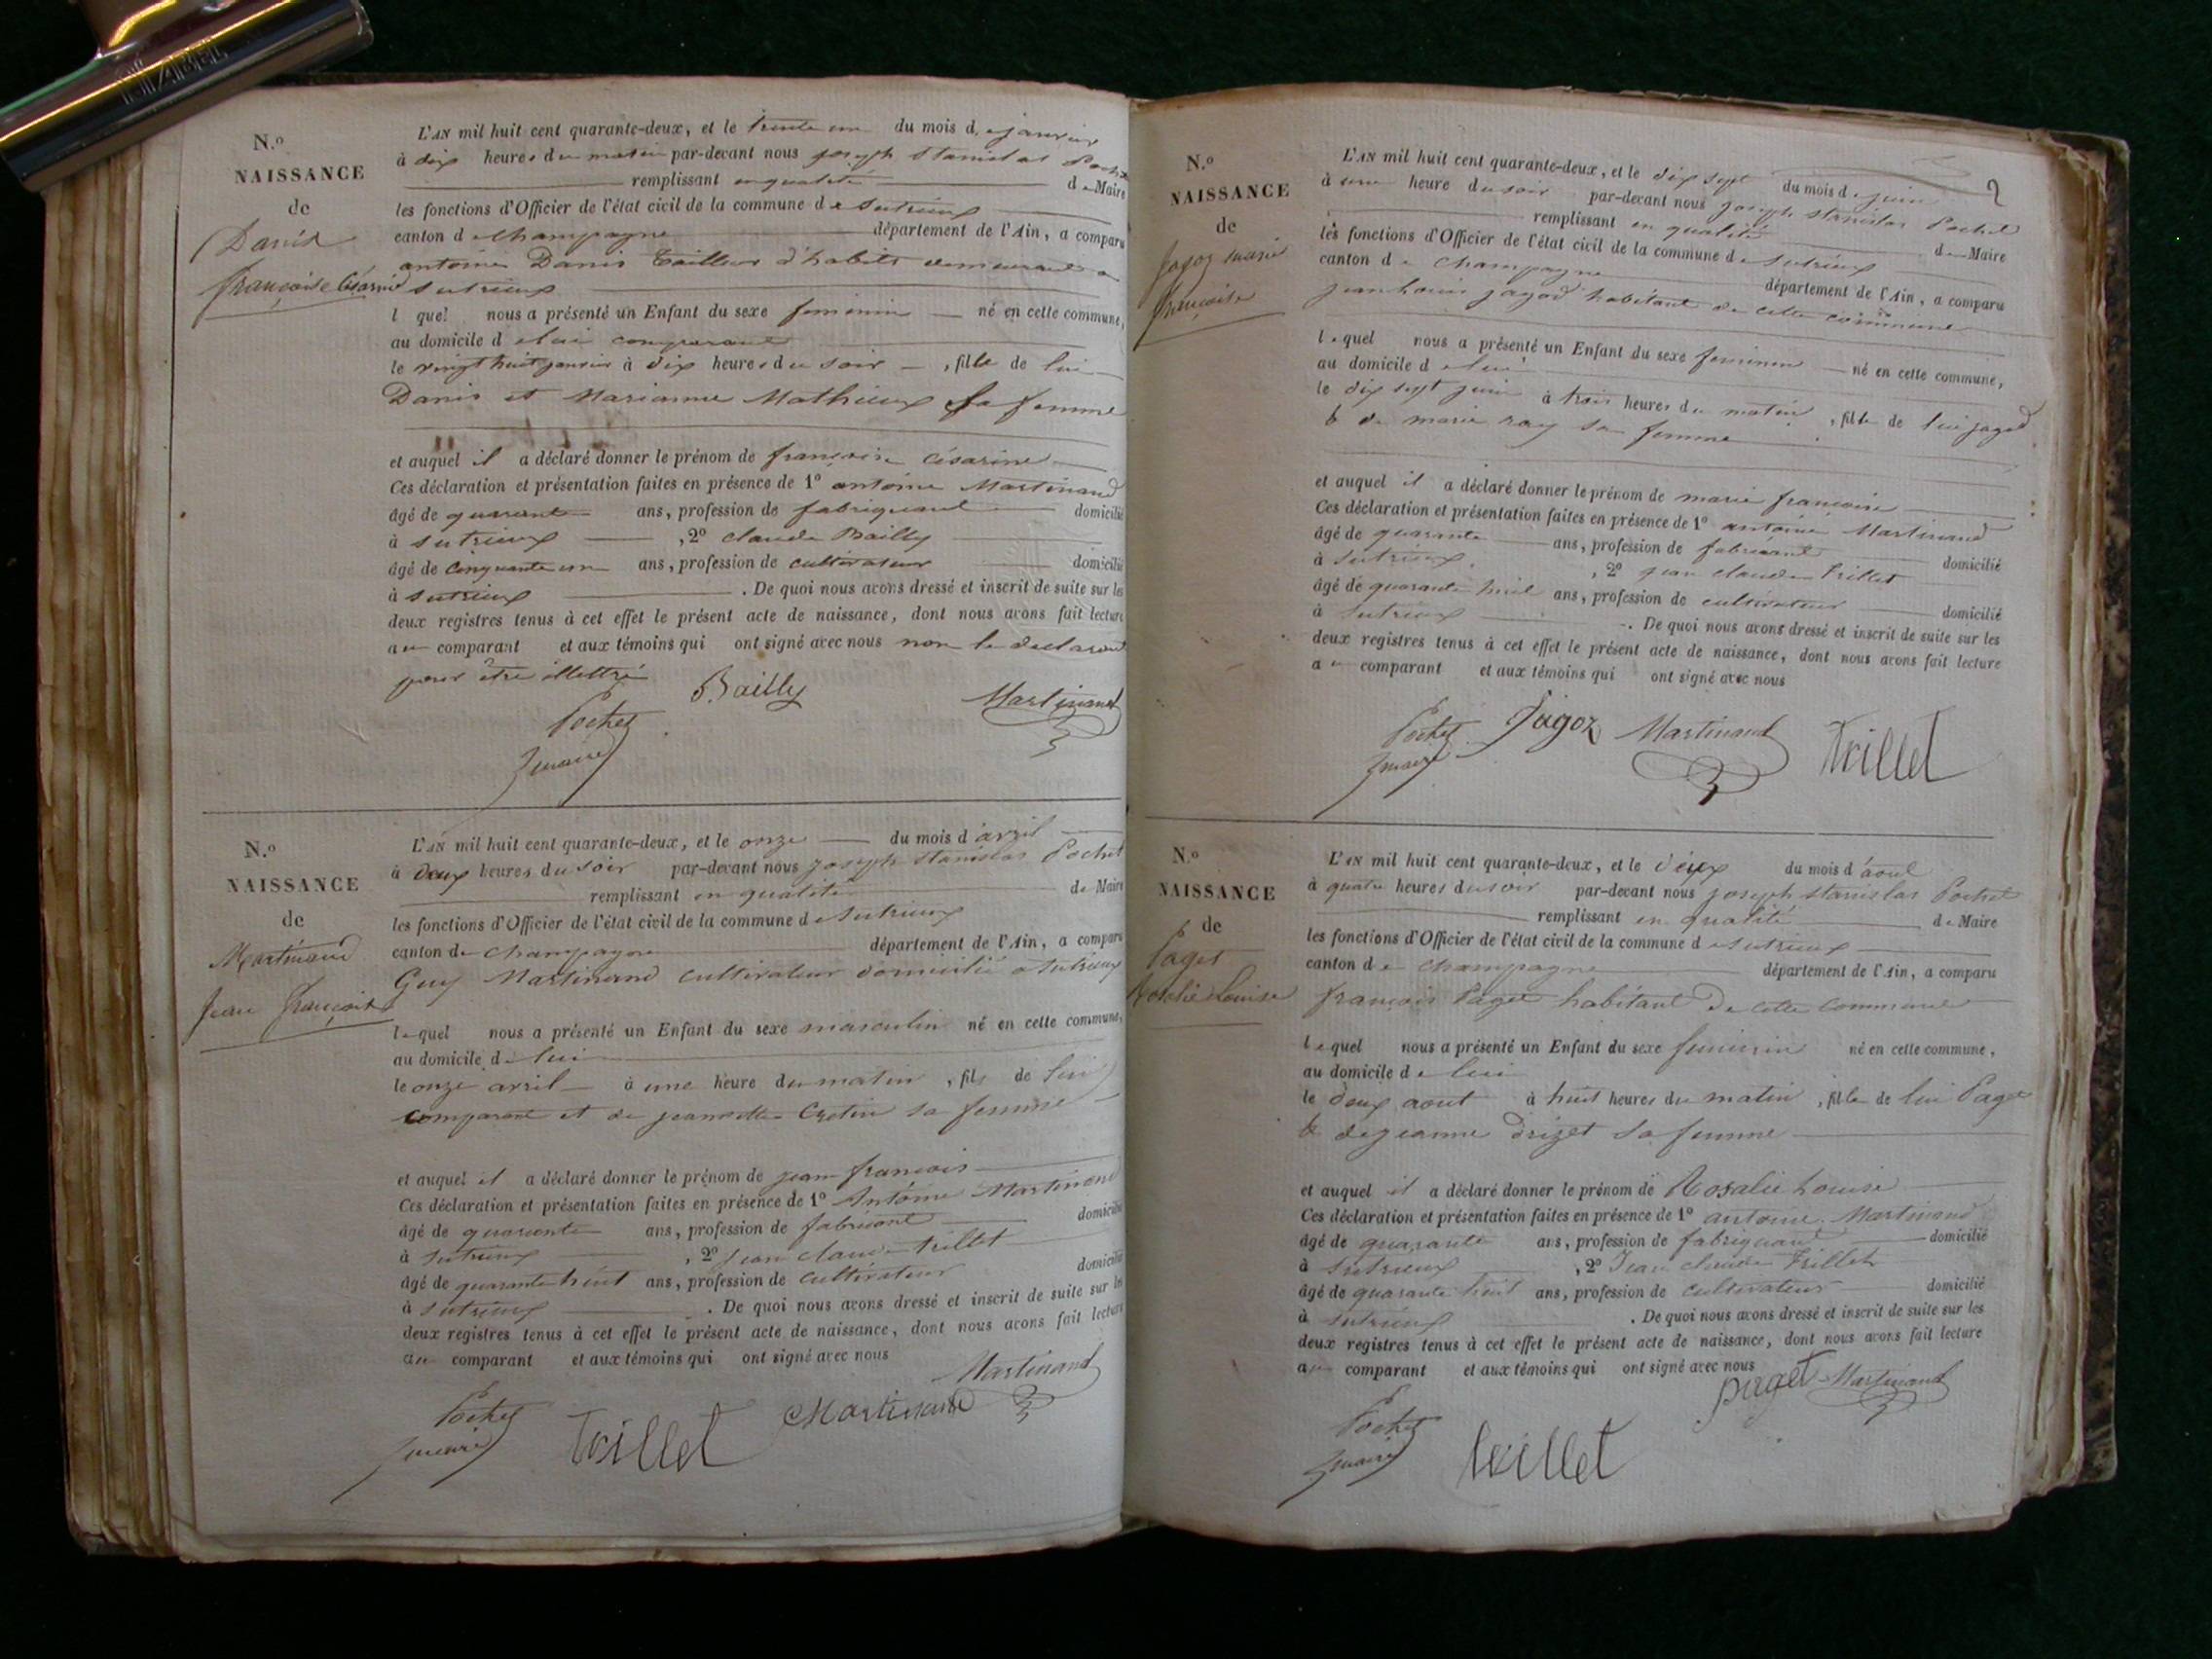 N.º
NAISSANCE
de
Danis
françoise Césarine
L'AN mil huit cent quarante-deux, et le trente un du mois de janvier
à dix heures du matin par-devant nous joseph Stanislas Pochet
remplissant en qualité de Maire
les fonctions d'Officier de l'état civil de la commune de Sutrieux
canton de champagne département de l'Ain, a comparu
antoine Danis Tailleur d'habits demeurant a
Sutrieux
l quel nous a présenté un Enfant du sexe feminin né en cette commune,
au domicile de lui comparant
le vingt huit janvier à dix heures du soir, fille de lui
Danis et Marianne Mathieux sa femme
et auquel il a déclaré donner le prénom de françoise césarine
Ces déclaration et présentation faites en présence de 1º antoine Martinand
âgé de quarante ans, profession de fabriquant domicilié
à Sutrieux, 2º claude Bailly
âgé de cinquante un ans, profession de cultivateur domicilié
à Sutrieux. De quoi nous avons dressé et inscrit de suite sur les
deux registres tenus à cet effet le présent acte de naissance, dont nous avons fait lecture
au comparant et aux témoins qui ont signé avec nous non le declarant
pour être illettré
Bailly Martinand
Pochet
maire
N.º
NAISSANCE
de
Martinand
Jean françois
L'AN mil huit cent quarante-deux, et le onze du mois d'avril
à deux heures du soir par-devant nous joseph stanislas Pochet
remplissant en qualité de Maire
les fonctions d'Officier de l'état civil de la commune de Sutrieux
canton de champagne département de l'Ain, a comparu
Guy Martinand cultivateur domicilié a Sutrieux
lequel nous a présenté un Enfant du sexe masculin né en cette commune,
au domicile de lui
le onze avril à une heure du matin, fils de lui
comparant et de jeannette Cretin sa femme
et auquel il a déclaré donner le prénom de jean françois
Ces déclaration et présentation faites en présence de 1º Antoine Martinand
âgé de quarante ans, profession de fabricant domicilié
à Sutrieux, 2º jean claude trillet
âgé de quarante huit ans, profession de cultivateur domicilié
à Sutrieux. De quoi nous avons dressé et inscrit de suite sur les
deux registres tenus à cet effet le présent acte de naissance, dont nous avons fait lecture
au comparant et aux témoins qui ont signé avec nous
Martinand
Pochet Trillet Martinand
maire
2
N.º
NAISSANCE
de
Jagoz marie
françoise
L'AN mil huit cent quarante-deux, et le dix sept du mois de juin
à une heure du soir par-devant nous joseph stanislas Pochet
remplissant en qualité de Maire
les fonctions d'Officier de l'état civil de la commune de Sutrieux
canton de champagne département de l'Ain, a comparu
jean Louis jagod habitant de cette commune
lequel nous a présenté un Enfant du sexe feminin né en cette commune,
au domicile de lui
le dix sept juin à trois heures du matin, fille de lui jagod
& de marie ray sa femme
et auquel il a déclaré donner le prénom de marie francoise
Ces déclaration et présentation faites en présence de 1º antoine Martinand
âgé de quarante ans, profession de fabricant domicilié
à Sutrieux, 2º jean claude trillet
âgé de quarante huit ans, profession de cultivateur domicilié
à Sutrieux. De quoi nous avons dressé et inscrit de suite sur les
deux registres tenus à cet effet le présent acte de naissance, dont nous avons fait lecture
au comparant et aux témoins qui ont signé avec nous
Pochet Jagoz Martinand Trillet
maire
N.º
NAISSANCE
de
Paget
Rosalie Louise
L'AN mil huit cent quarante-deux, et le deux du mois d'aout
à quatre heures du soir par-devant nous joseph stanislas Pochet
remplissant en qualité de Maire
les fonctions d'Officier de l'état civil de la commune de Sutrieux
canton de champagne département de l'Ain, a comparu
françois Paget habitant de cette commune
lequel nous a présenté un Enfant du sexe feminin né en cette commune,
au domicile de lui
le deux aout à huit heures du matin, fille de lui Paget
& de jeanne drizet sa femme
et auquel il a déclaré donner le prénom de Rosalie Louise
Ces déclaration et présentation faites en présence de 1º antoine Martinand
âgé de quarante ans, profession de fabriquant domicilié
à Sutrieux, 2º Jean claude Trillet
âgé de quarante huit ans, profession de cultivateur domicilié
à Sutrieux. De quoi nous avons dressé et inscrit de suite sur les
deux registres tenus à cet effet le présent acte de naissance, dont nous avons fait lecture
au comparant et aux témoins qui ont signé avec nous
paget Martinand
Pochet Trillet
maire